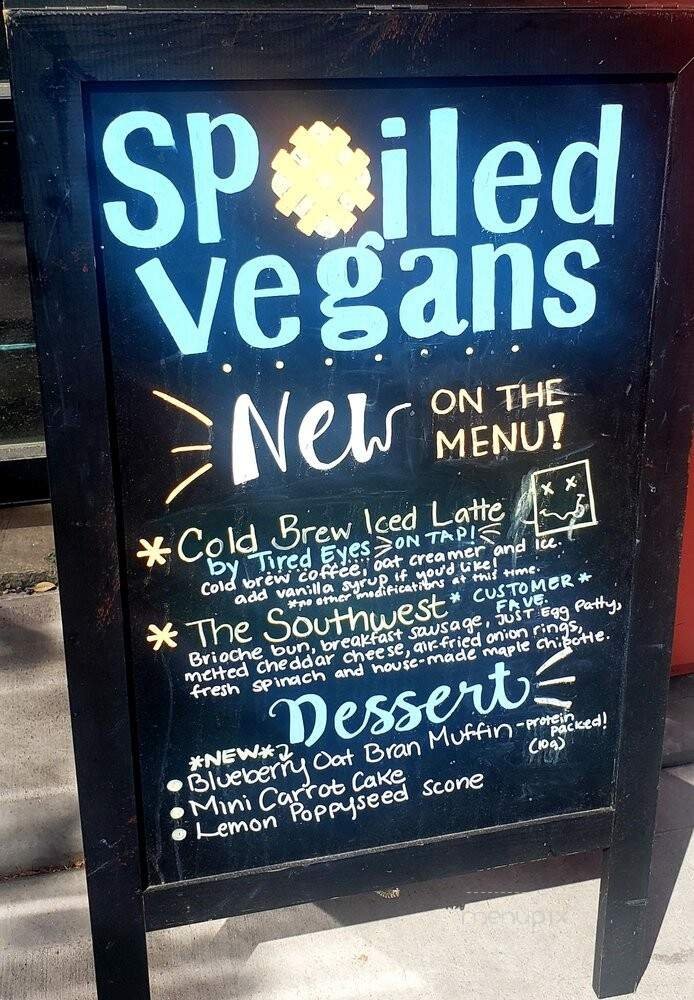 Spoiled
vegans
New ON THE
MENU!
* Cold Brew Iced Latte
by Tired Eyes ON TAP!
Cold brew coffee, oat creamer and ice.
add vanilla syrup if you'd like!
*no other modifications at this time.
* The Southwest * CUSTOMER *
FAVE.
Brioche bun, breakfast sausage, JUST Egg Patty,
melted cheddar cheese, air-fried onion rings,
fresh spinach and house-made maple chipotle.
Dessert
*NEW*
• Blueberry Oat Bran Muffin - protein
packed!
(10g)
• Mini Carrot Cake
• Lemon Poppyseed scone
menupix